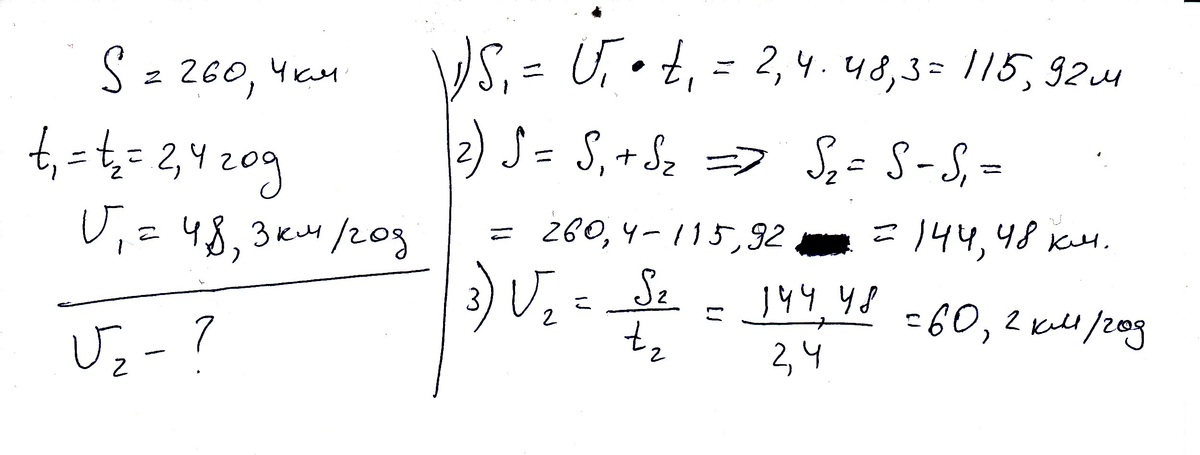 S = 260,4 км
t₁ = t₂ = 2,4 год
V₁ = 48,3 км/год
V₂ - ?
1) S₁ = V₁ • t₁ = 2,4 · 48,3 = 115,92 м
2) S = S₁ + S₂ => S₂ = S - S₁ =
= 260,4 - 115,92 = 144,48 км.
3) V₂ = S₂/t₂ = 144,48/2,4 = 60,2 км/год